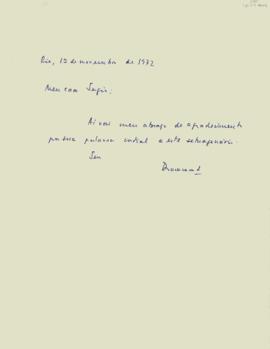 Rio, 15 de novembro de 1972
Meu caro Sérgio:
Aí vai meu abraço de agradecimento
por sua palavra cordial a este setuagenário.
Seu
Drummond